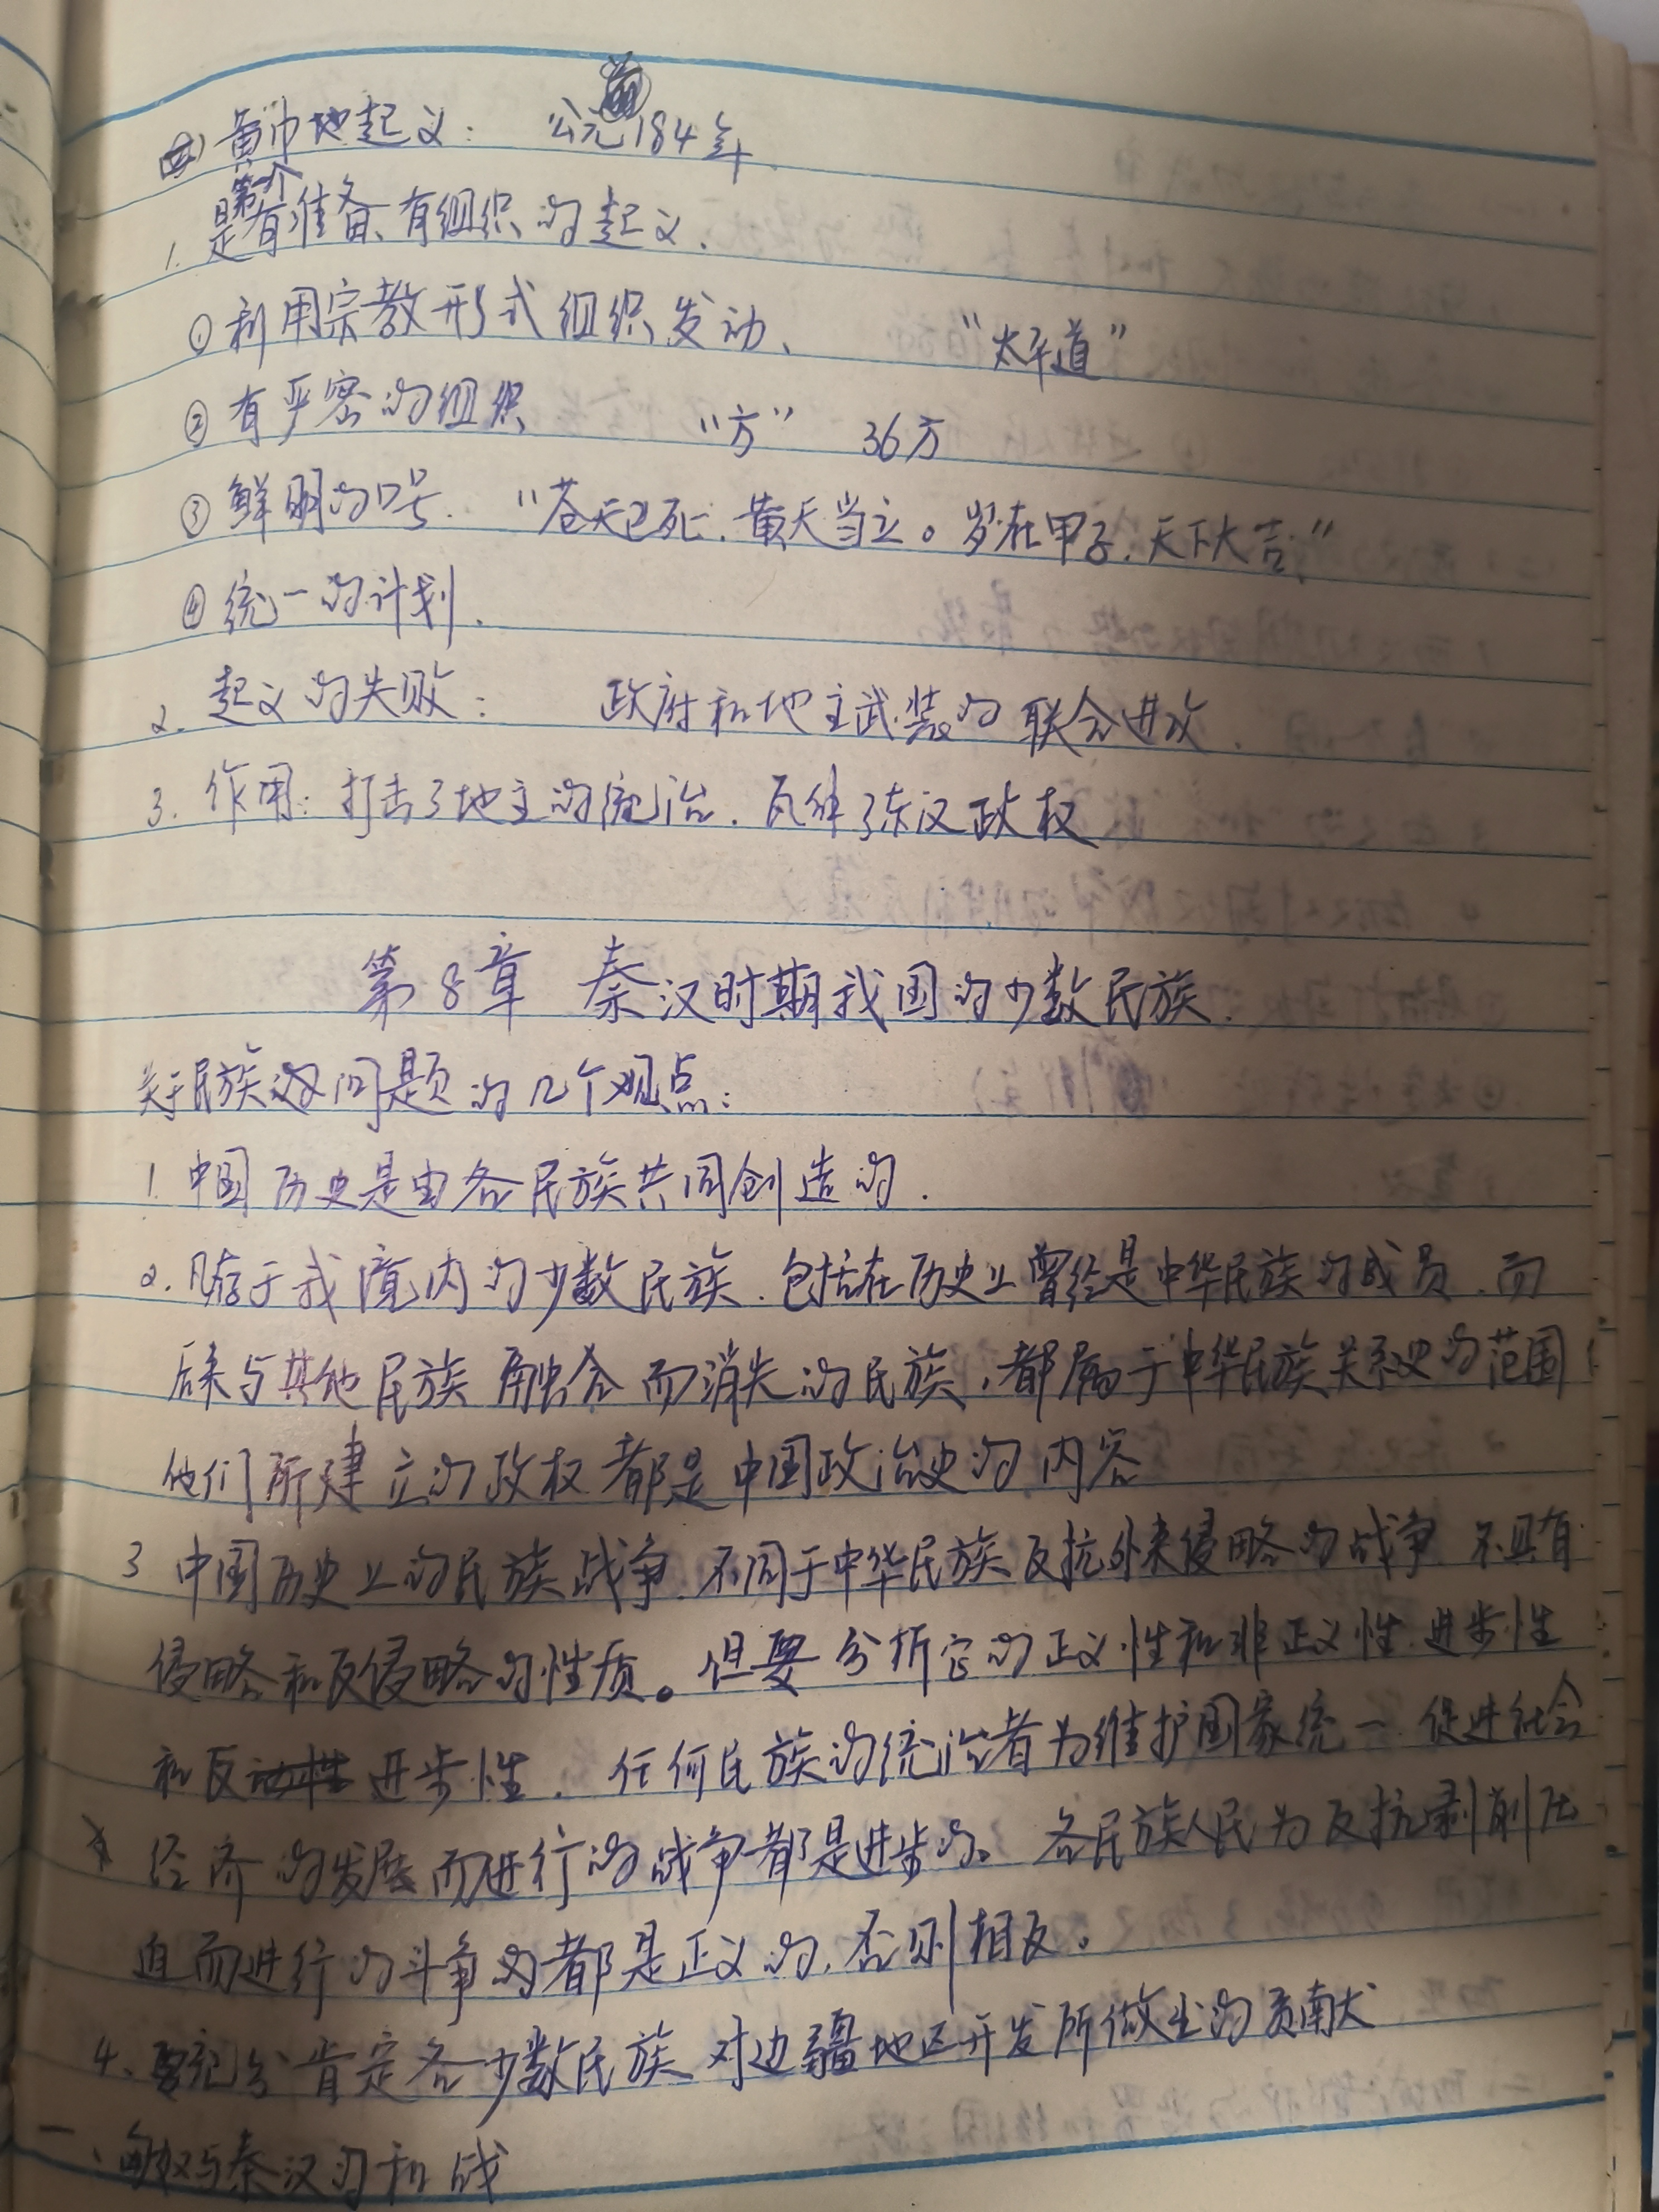 (四) 黄巾起义: 公元184年
第一个
1. 是有准备、有组织的起义.
①利用宗教形式组织发动、 “太平道”
②有严密的组织 “方” 36方
③鲜明的口号. “苍天已死.黄天当立。岁在甲子.天下大吉”
④统一的计划.
2. 起义的失败: 政府和地主武装的联合进攻.
3. 作用: 打击了地主的统治.瓦解了东汉政权
第8章 秦汉时期我国的少数民族.
关于民族问题的几个观点:
1. 中国历史是由各民族共同创造的.
2. 凡存于我境内的少数民族.包括在历史上曾经是中华民族的成员.而
后来与其他民族融合而消失的民族,都属于中华民族关系史的范围
他们所建立的政权都是中国政治史的内容
3 中国历史上的民族战争.不同于中华民族反抗外来侵略的战争 不具有
侵略和反侵略的性质。但要分析它的正义性和非正义性.进步性
和反进步性. 任何民族的统治者为维护国家统一.促进社会
经济的发展而进行的战争都是进步的。各民族人民为反抗剥削压
迫而进行的斗争都是正义的,否则相反。
4、要充分肯定各少数民族对边疆地区开发所做出的贡献
一、匈奴与秦汉的和战